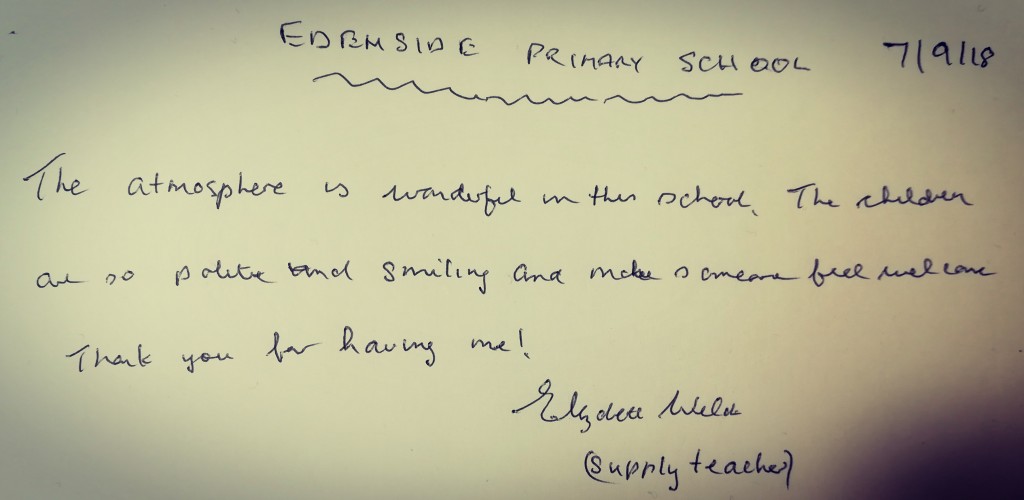 EDENSIDE PRIMARY SCHOOL 7/9/18
The atmosphere is wonderful in this school. The children
are so polite and smiling and make someone feel welcome
Thank you for having me!
(Supply teacher)